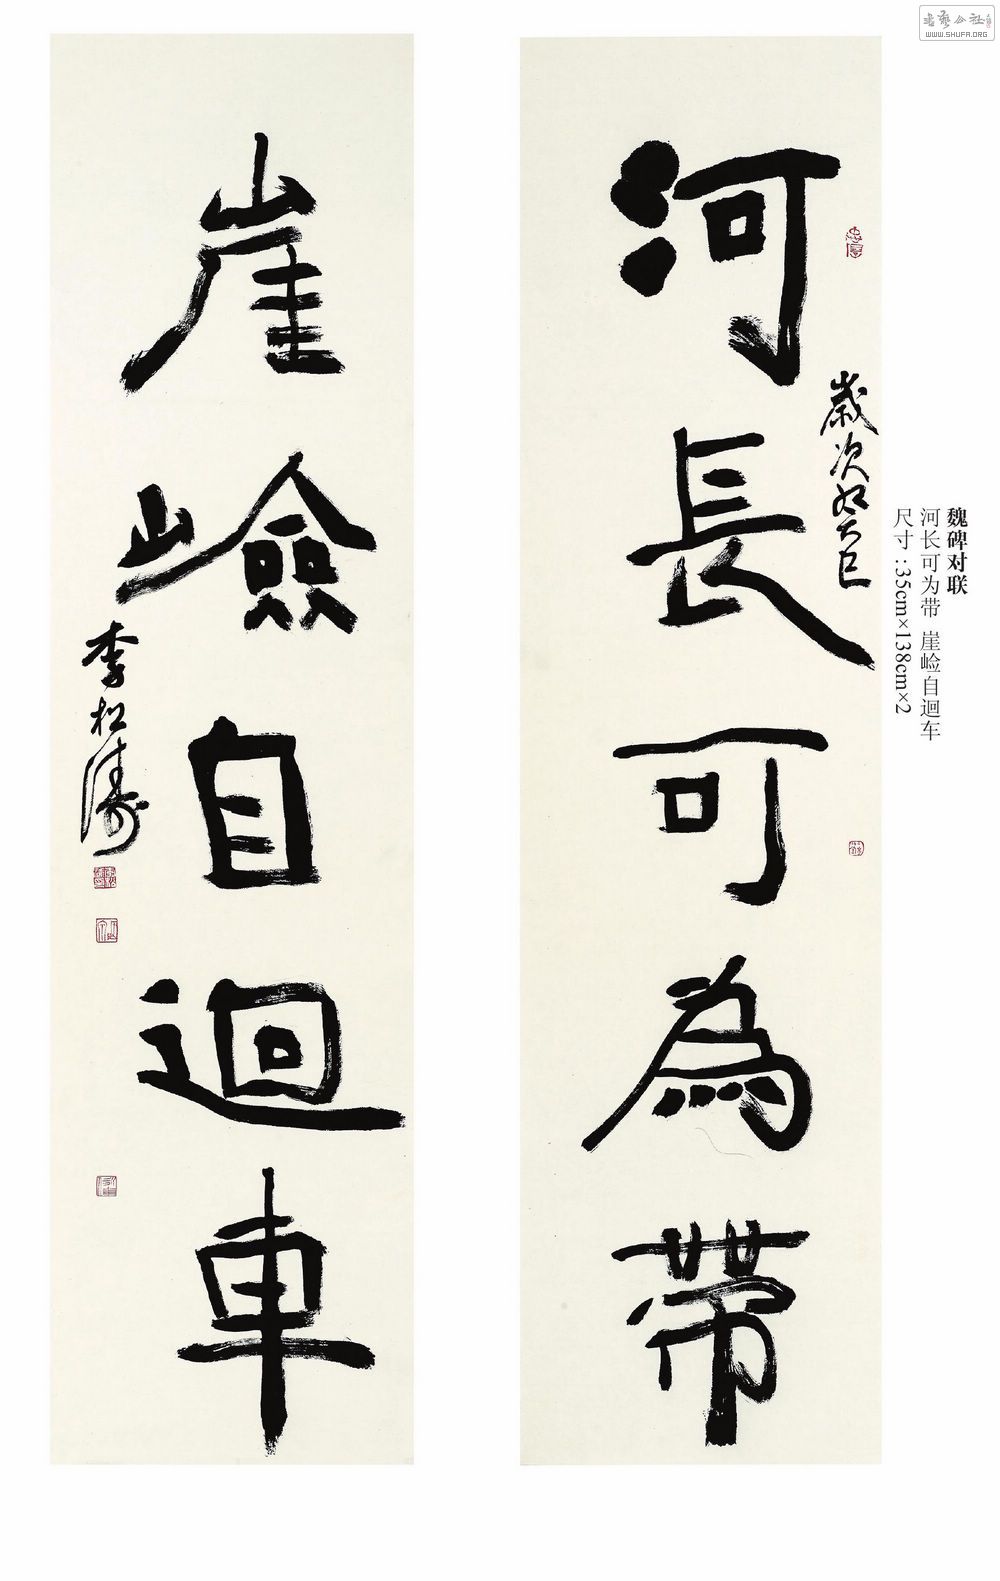 書藝公社
WWW.SHUFA.ORG
河長可為帶
歲次癸巳
崖嶮自迴車
李松濤
魏碑对联
河长可为带 崖崄自迴车
尺寸:35cm×138cm×2